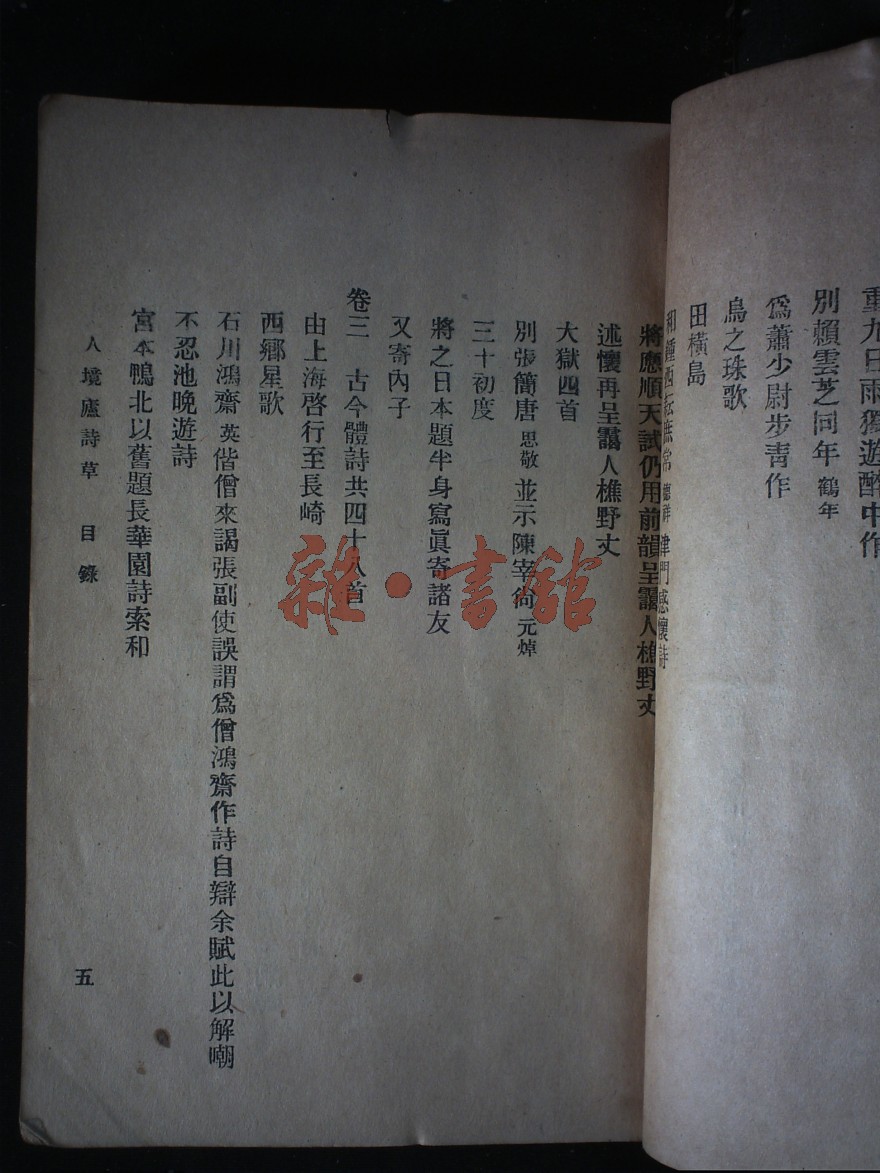 重九日雨獨遊醉中作
別賴雲芝同年 鶴年
爲蕭少尉步青作
烏之珠歌
田橫島
和鍾西耘庶常 德祥 津門感懷詩
將應順天試仍用前韻呈靄人樵野丈
述懷再呈靄人樵野丈
大獄四首
別張簡唐 思敬 並示陳宰尙 元焯
三十初度
將之日本題半身寫眞寄諸友
又寄內子
卷三　古今體詩共四十八首
由上海啓行至長崎
西鄉星歌
石川鴻齋 英 偕僧來謁張副使誤謂爲僧鴻齋作詩自辯余賦此以解嘲
不忍池晚遊詩
宮本鴨北以舊題長華園詩索和
人境廬詩草　目錄
五
雜·書館